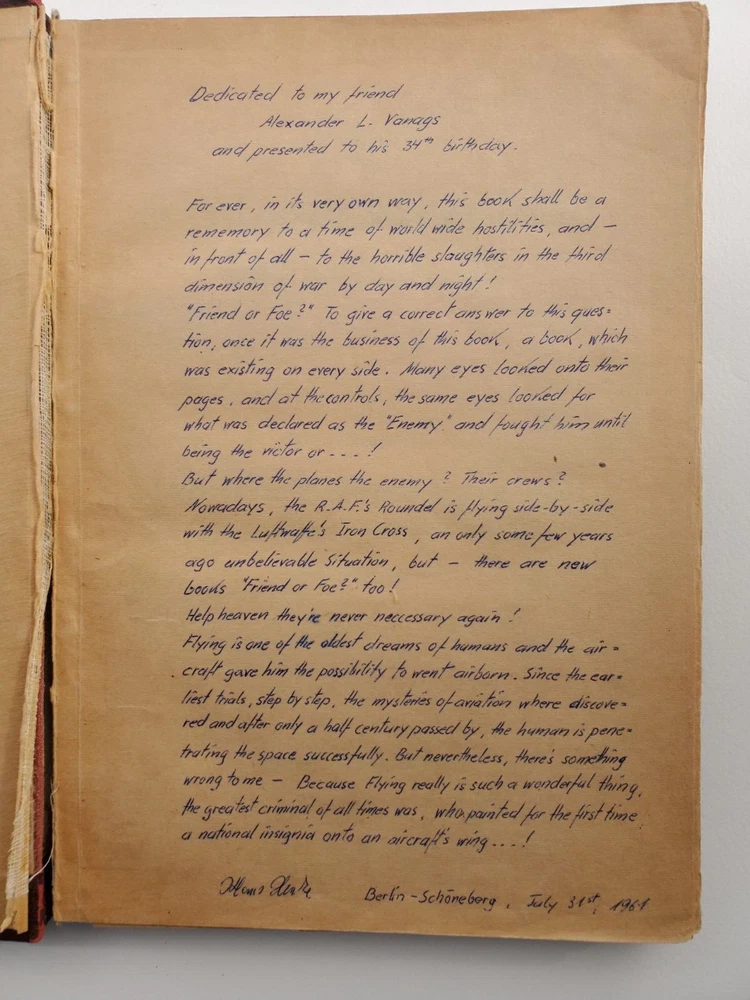 Dedicated to my friend
Alexander L. Vanags
and presented to his 34th birthday.
For ever, in its very own way, this book shall be a
rememory to a time of world wide hostilities, and —
in front of all — to the horrible slaughters in the third
dimension of war by day and night!
"Friend or Foe?" To give a correct answer to this ques=
tion, once it was the business of this book, a book, which
was existing on every side. Many eyes looked onto their
pages, and at the controls, the same eyes looked for
what was declared as the "Enemy" and fought him until
being the victor or - - - !
But where the planes the enemy? Their crews?
Nowadays, the R.A.F.'s Roundel is flying side-by-side
with the Luftwaffe's Iron Cross, an only some few years
ago unbelievable Situation, but — there are new
books "Friend or Foe?" too!
Help heaven they're never neccessary again!
Flying is one of the oldest dreams of humans and the air=
craft gave him the possibility to went airborn. Since the ear=
liest trials, step by step, the mysteries of aviation where discove=
red and after only a half century passed by, the human is pene=
trating the space successfully. But nevertheless, there's something
wrong to me — Because Flying really is such a wonderful thing,
the greatest criminal of all times was, who painted for the first time
a national insignia onto an aircraft's wing - - - !
Berlin-Schöneberg, July 31st, 1961